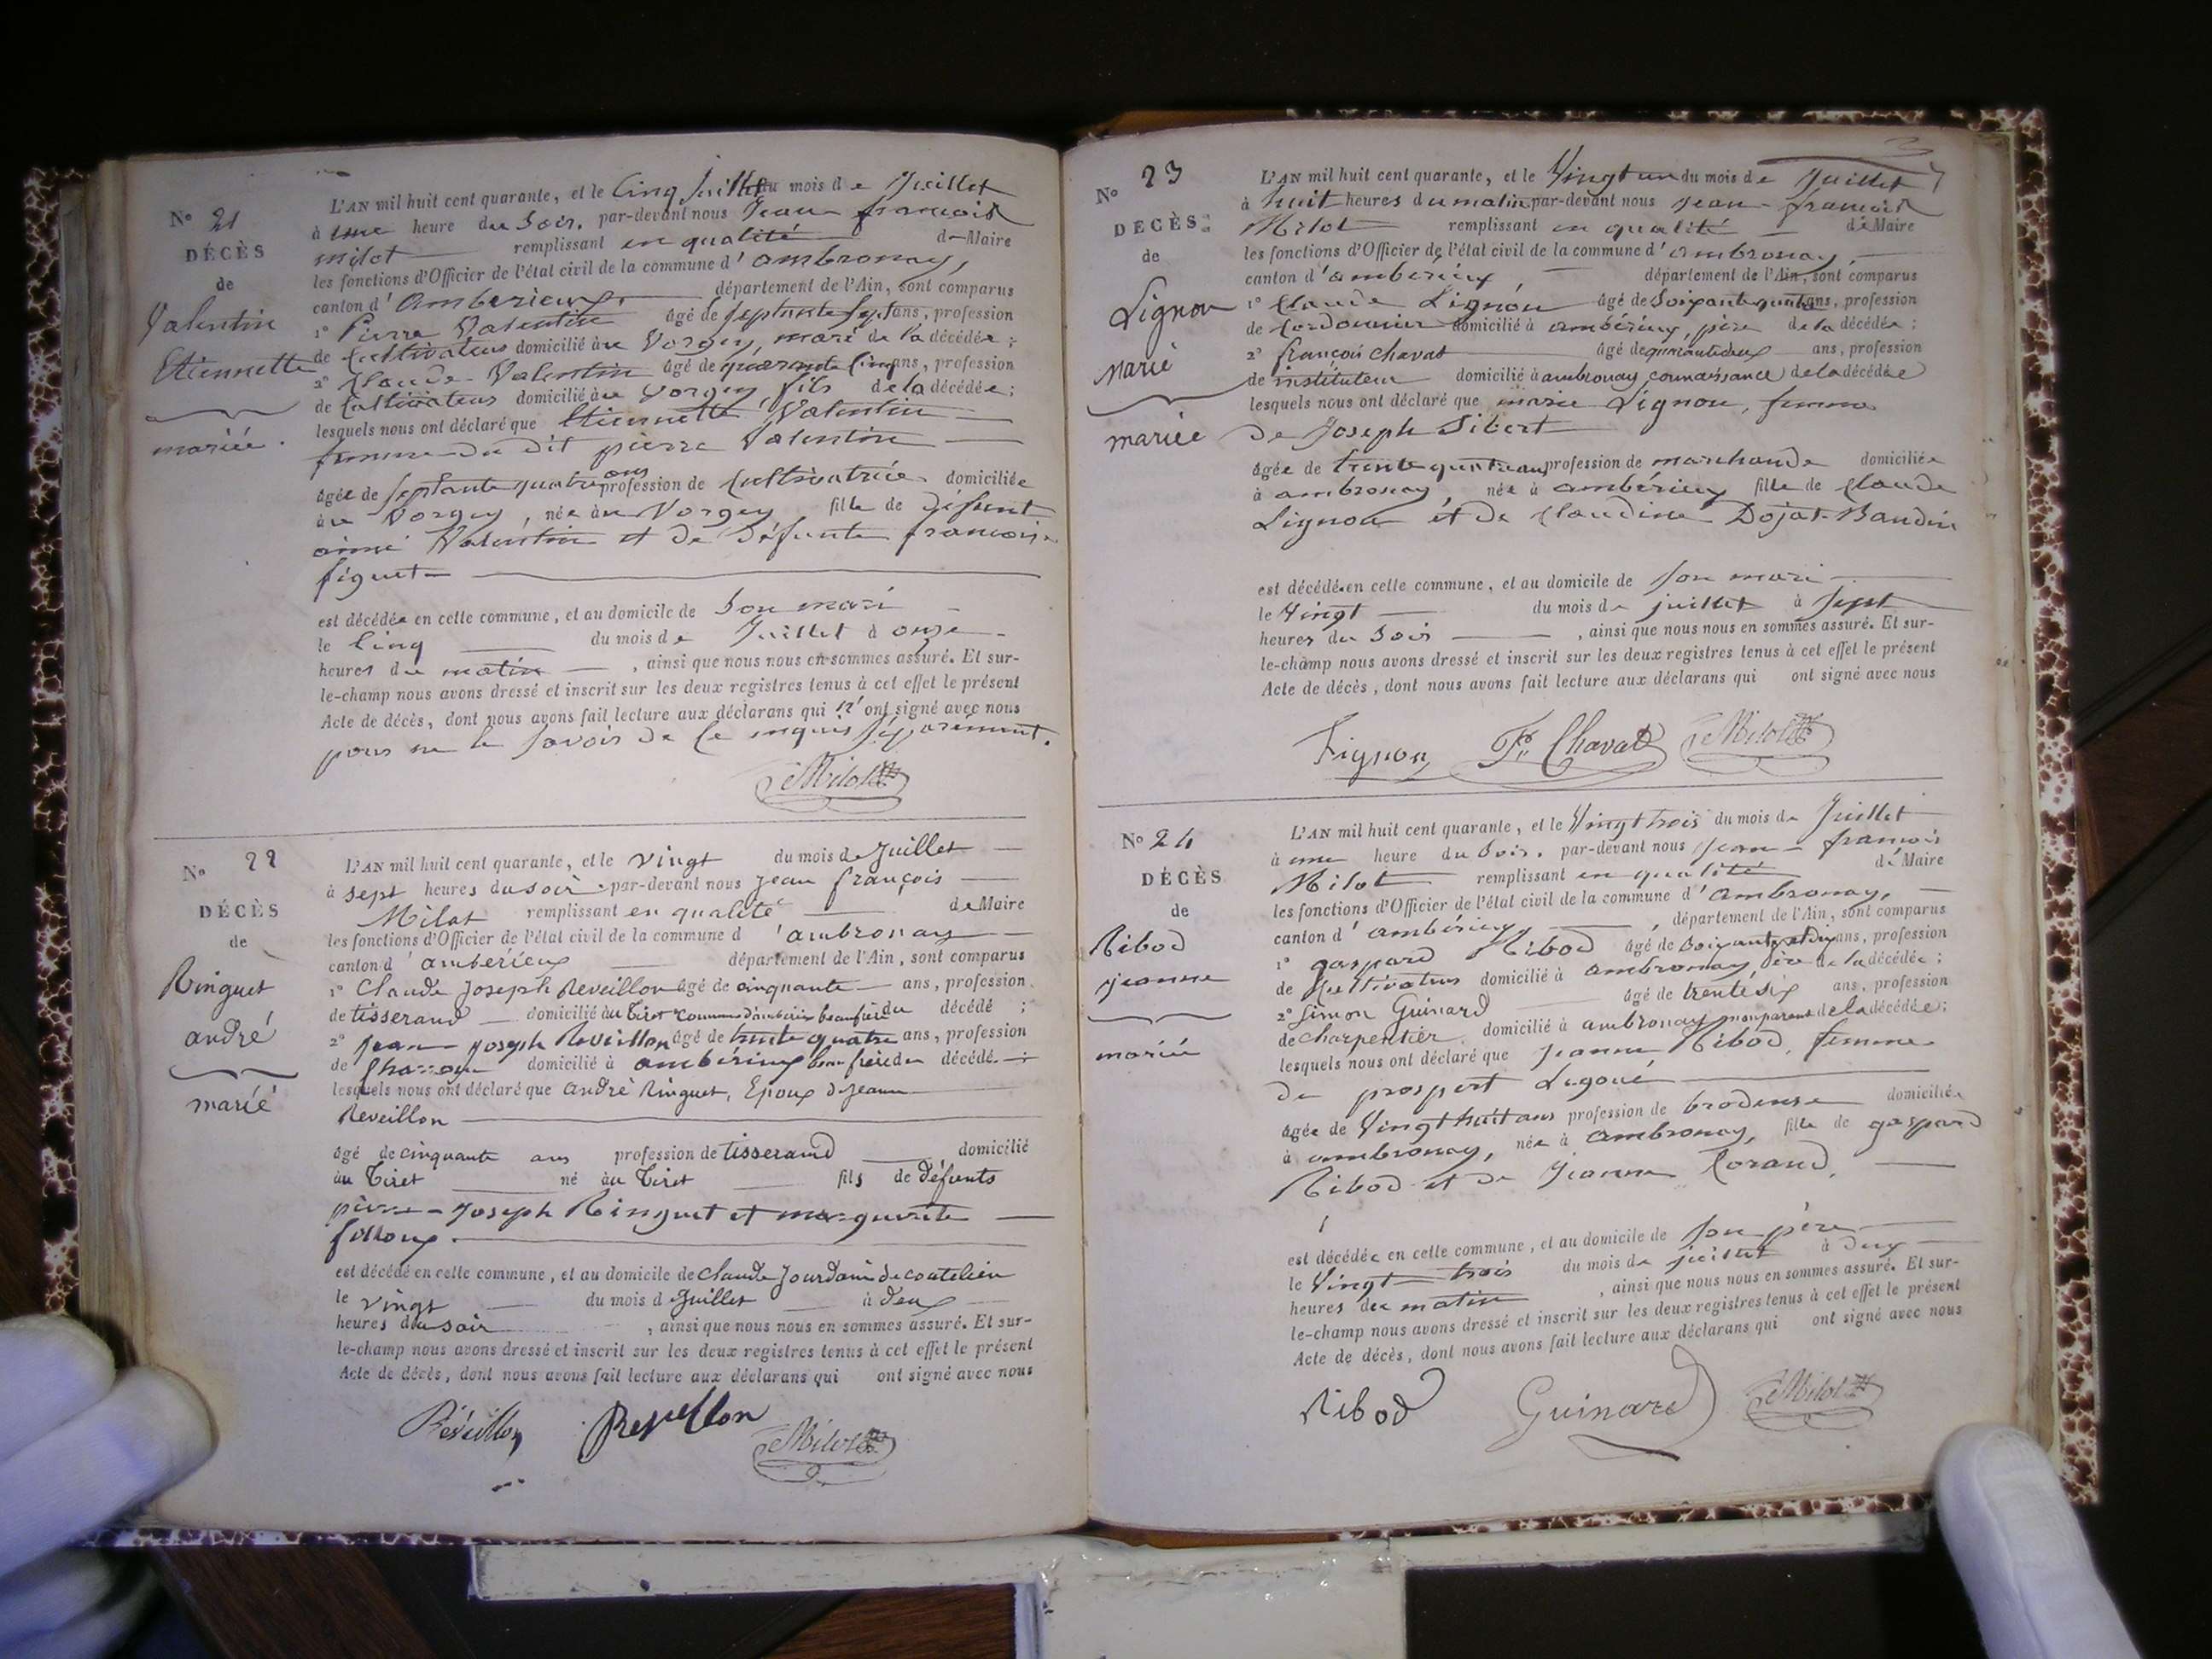 N° 21
DÉCÈS
de
Valentin
Etiennette
mariée.
L'AN mil huit cent quarante, et le Cinq du mois de Juillet
à une heure du Soir, par-devant nous Jean françois
milot remplissant en qualité de Maire
les fonctions d'Officier de l'état civil de la commune d'ambronay,
canton d'Amberieux, département de l'Ain, sont comparus
1° Pierre Valentin âgé de septante sept ans, profession
de Cultivateur domicilié au Vorgey, mari de la décédée;
2° Claude Valentin âgé de quarante Cinq ans, profession
de Cultivateur domicilié au Vorgey, fils de la décédée;
lesquels nous ont déclaré que Etiennette Valentin
femme du dit pierre Valentin
âgée de septante quatre ans profession de Cultivatrice domiciliée
au Vorgey, née au Vorgey fille de défunt
aimé Valentin et de défunte françoise
figuet
est décédée en cette commune, et au domicile de Son mari
le Cinq du mois de Juillet à onze
heures du matin, ainsi que nous nous en sommes assuré. Et sur-
le-champ nous avons dressé et inscrit sur les deux registres tenus à cet effet le présent
Acte de décès, dont nous avons fait lecture aux déclarans qui n'ont signé avec nous
pour ne le savoir de ce enquis séparément.
Milot
N° 22
DÉCÈS
de
Ringuet
andré
marié
L'AN mil huit cent quarante, et le vingt du mois de Juillet
à sept heures du soir par-devant nous Jean françois
Milot remplissant en qualité de Maire
les fonctions d'Officier de l'état civil de la commune d'ambronay
canton d'amberieux département de l'Ain, sont comparus
1° Claude Joseph Reveillon âgé de cinquante ans, profession
de tisserand domicilié au Tiret commune d'amberieux beaufrère du décédé;
2° Jean Joseph Reveillon âgé de trente quatre ans, profession
de Charron domicilié à ambérieux beau frère du décédé.
lesquels nous ont déclaré que andré Ringuet, Epoux de Jeanne
Reveillon
âgé de cinquante ans profession de tisserand domicilié
au Tiret né au Tiret fils de défunts
pierre-Joseph Ringuet et marguerite
folloux.
est décédé en cette commune, et au domicile de Claude Jourdain de coutelieu
le vingt du mois de Juillet à deux
heures du soir, ainsi que nous nous en sommes assuré. Et sur-
le-champ nous avons dressé et inscrit sur les deux registres tenus à cet effet le présent
Acte de décès, dont nous avons fait lecture aux déclarans qui ont signé avec nous
Réveillon Reveillon Milot
N° 23
DÉCÈS
de
Lignon
Marie
mariée
L'AN mil huit cent quarante, et le Vingt un du mois de Juillet
à huit heures du matin par-devant nous jean-françois
Milot remplissant en qualité de Maire
les fonctions d'Officier de l'état civil de la commune d'ambronay,
canton d'ambérieux département de l'Ain, sont comparus
1° Claude Lignon âgé de Soixante quatre ans, profession
de Cordonnier domicilié à ambérieux, père de la décédée;
2° françois chavat âgé de quarante deux ans, profession
de instituteur domicilié à ambronay connaissance de la décédée
lesquels nous ont déclaré que marie Lignon, femme
de Joseph Sibert
âgée de trente quatre ans profession de marchande domiciliée
à ambronay, née à ambérieux fille de Claude
Lignon et de Claudine Dojat-Baudin
est décédée en cette commune, et au domicile de son mari
le Vingt du mois de juillet à sept
heures du Soir, ainsi que nous nous en sommes assuré. Et sur-
le-champ nous avons dressé et inscrit sur les deux registres tenus à cet effet le présent
Acte de décès, dont nous avons fait lecture aux déclarans qui ont signé avec nous
Lignon F. Chavat Milot
N° 24
DÉCÈS
de
Ribod
jeanne
mariée
L'AN mil huit cent quarante, et le Vingt trois du mois de Juillet
à une heure du Soir, par-devant nous jean-françois
Milot remplissant en qualité de Maire
les fonctions d'Officier de l'état civil de la commune d'ambronay,
canton d'ambérieux, département de l'Ain, sont comparus
1° gaspard Ribod âgé de Soixante et dix ans, profession
de Cultivateur domicilié à ambronay, père de la décédée;
2° Simon Guinard âgé de trente six ans, profession
de charpentier domicilié à ambronay non parent de la décédée;
lesquels nous ont déclaré que Jeanne Ribod, femme
de prospert Lagoué
âgée de Vingt huit ans profession de brodeuse domiciliée
à ambronay, née à ambronay, fille de gaspard
Ribod et de Jeanne Morand,
est décédée en cette commune, et au domicile de son père
le Vingt trois du mois de juillet à dix
heures du matin, ainsi que nous nous en sommes assuré. Et sur-
le-champ nous avons dressé et inscrit sur les deux registres tenus à cet effet le présent
Acte de décès, dont nous avons fait lecture aux déclarans qui ont signé avec nous
Ribod Guinard Milot